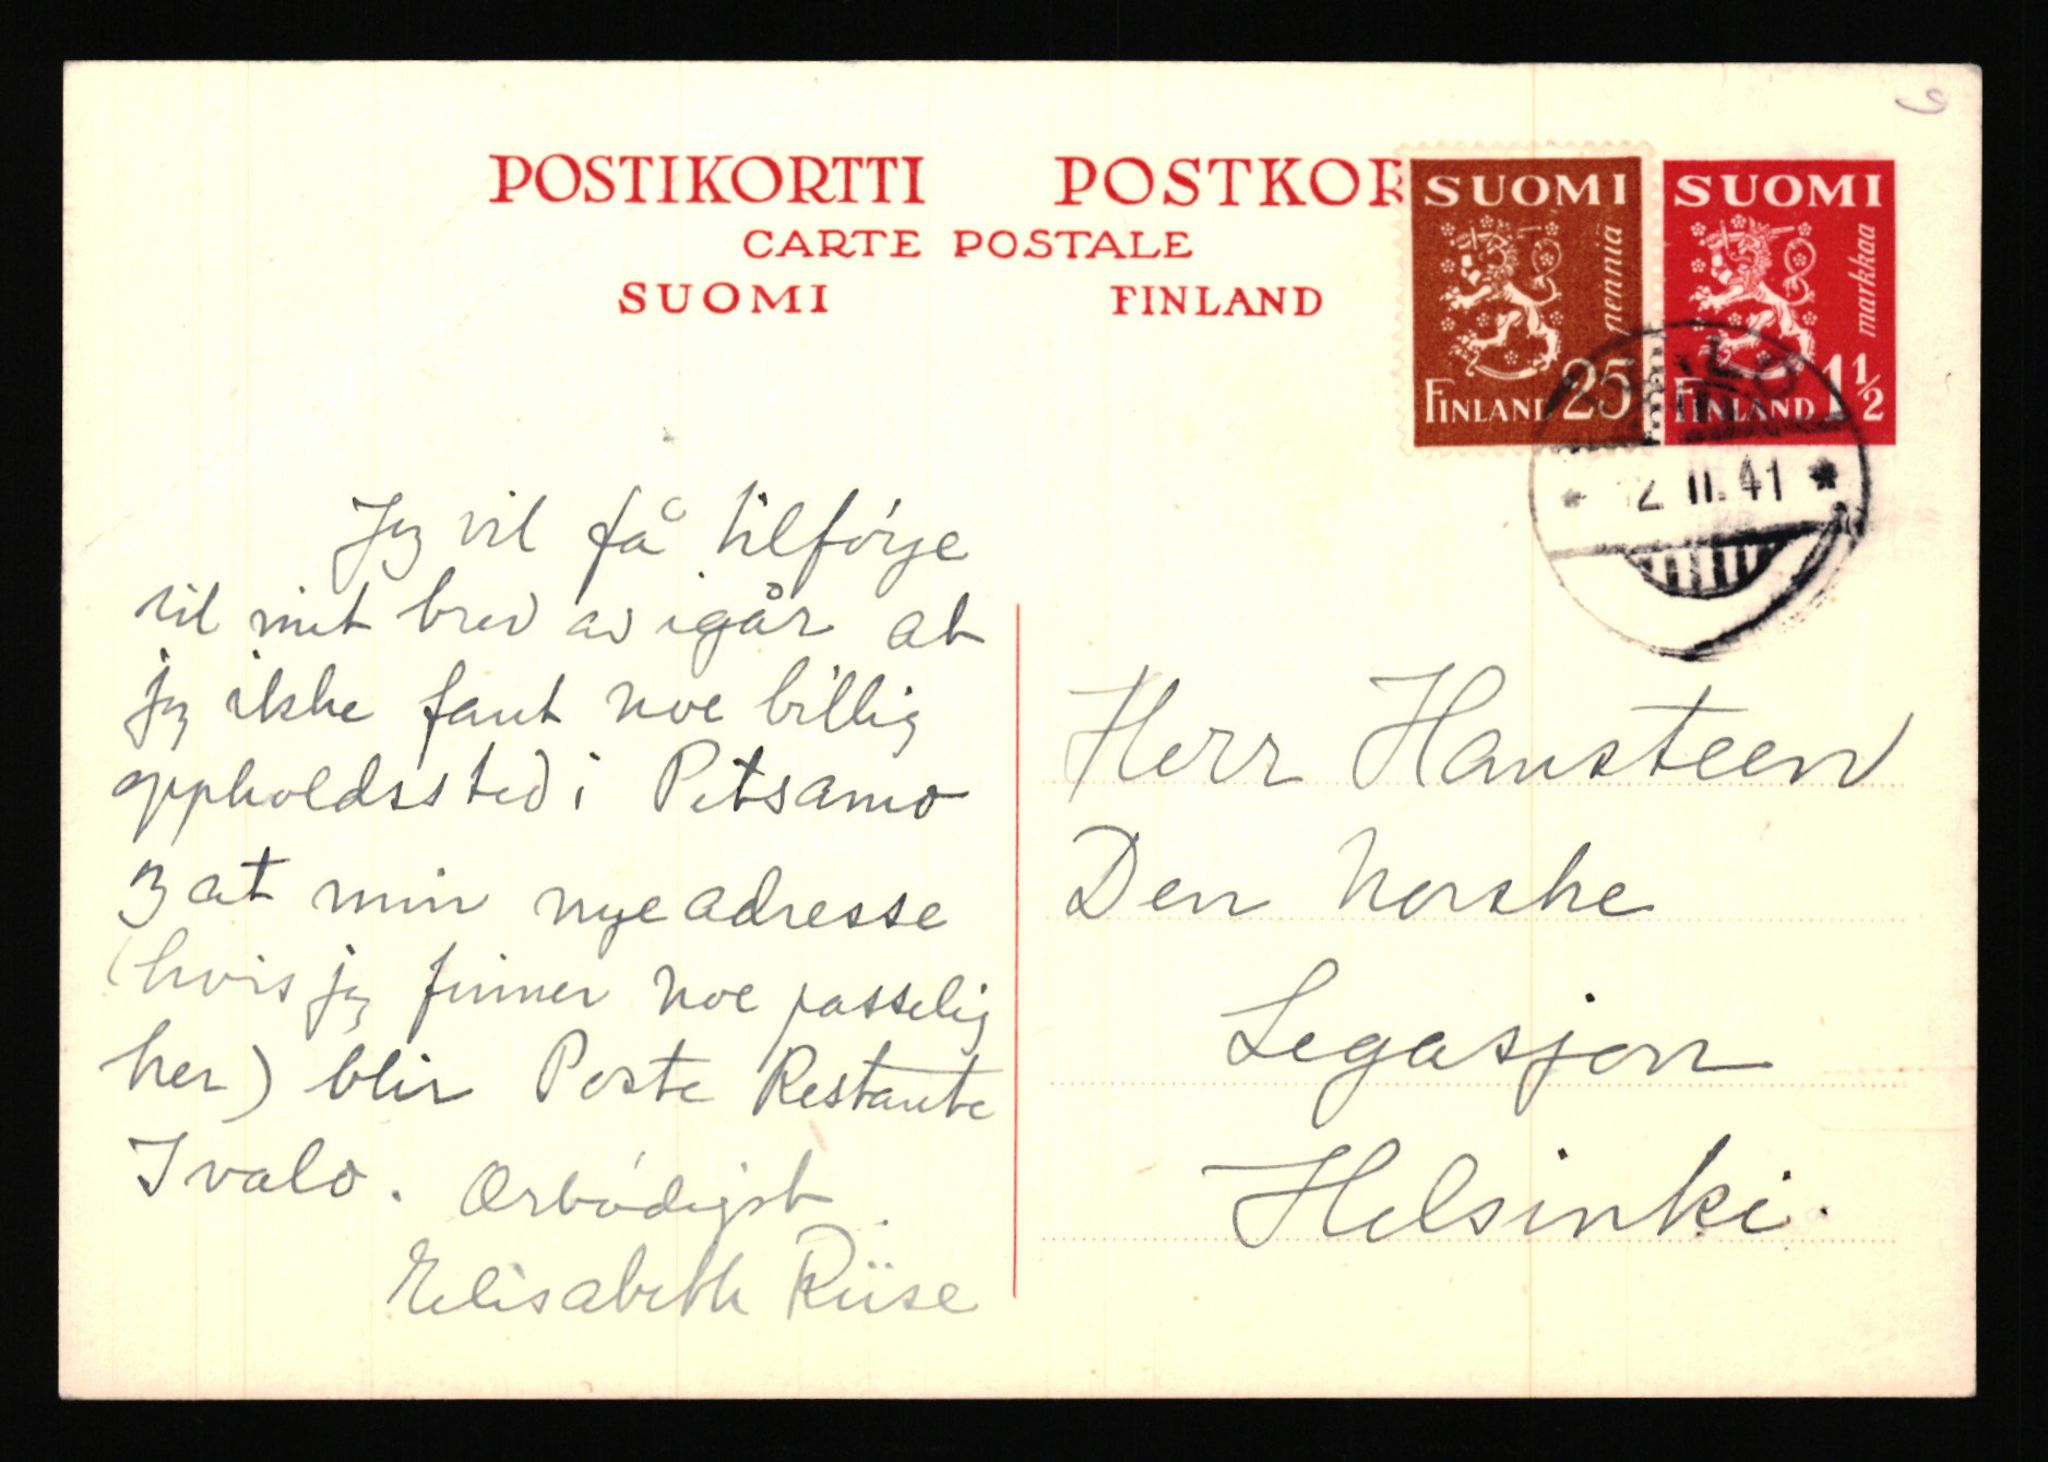 POSTIKORTTI POSTKOR
CARTE POSTALE
SUOMI FINLAND
SUOMI
pennia
FINLAND 25
SUOMI
markkaa
FINLAND 1 1/2
2 II. 41
Jeg vil få tilføye
til mit brev av igår at
jeg ikke fant noe billig
oppholdssted i Petsamo
og at min nye adresse
(hvis jeg finner noe passelig
her) blir Poste Restante
Ivalo. Ærbødigst
Elisabeth Riise
Herr Hansteen
Den Norske
Legasjon
Helsinki.